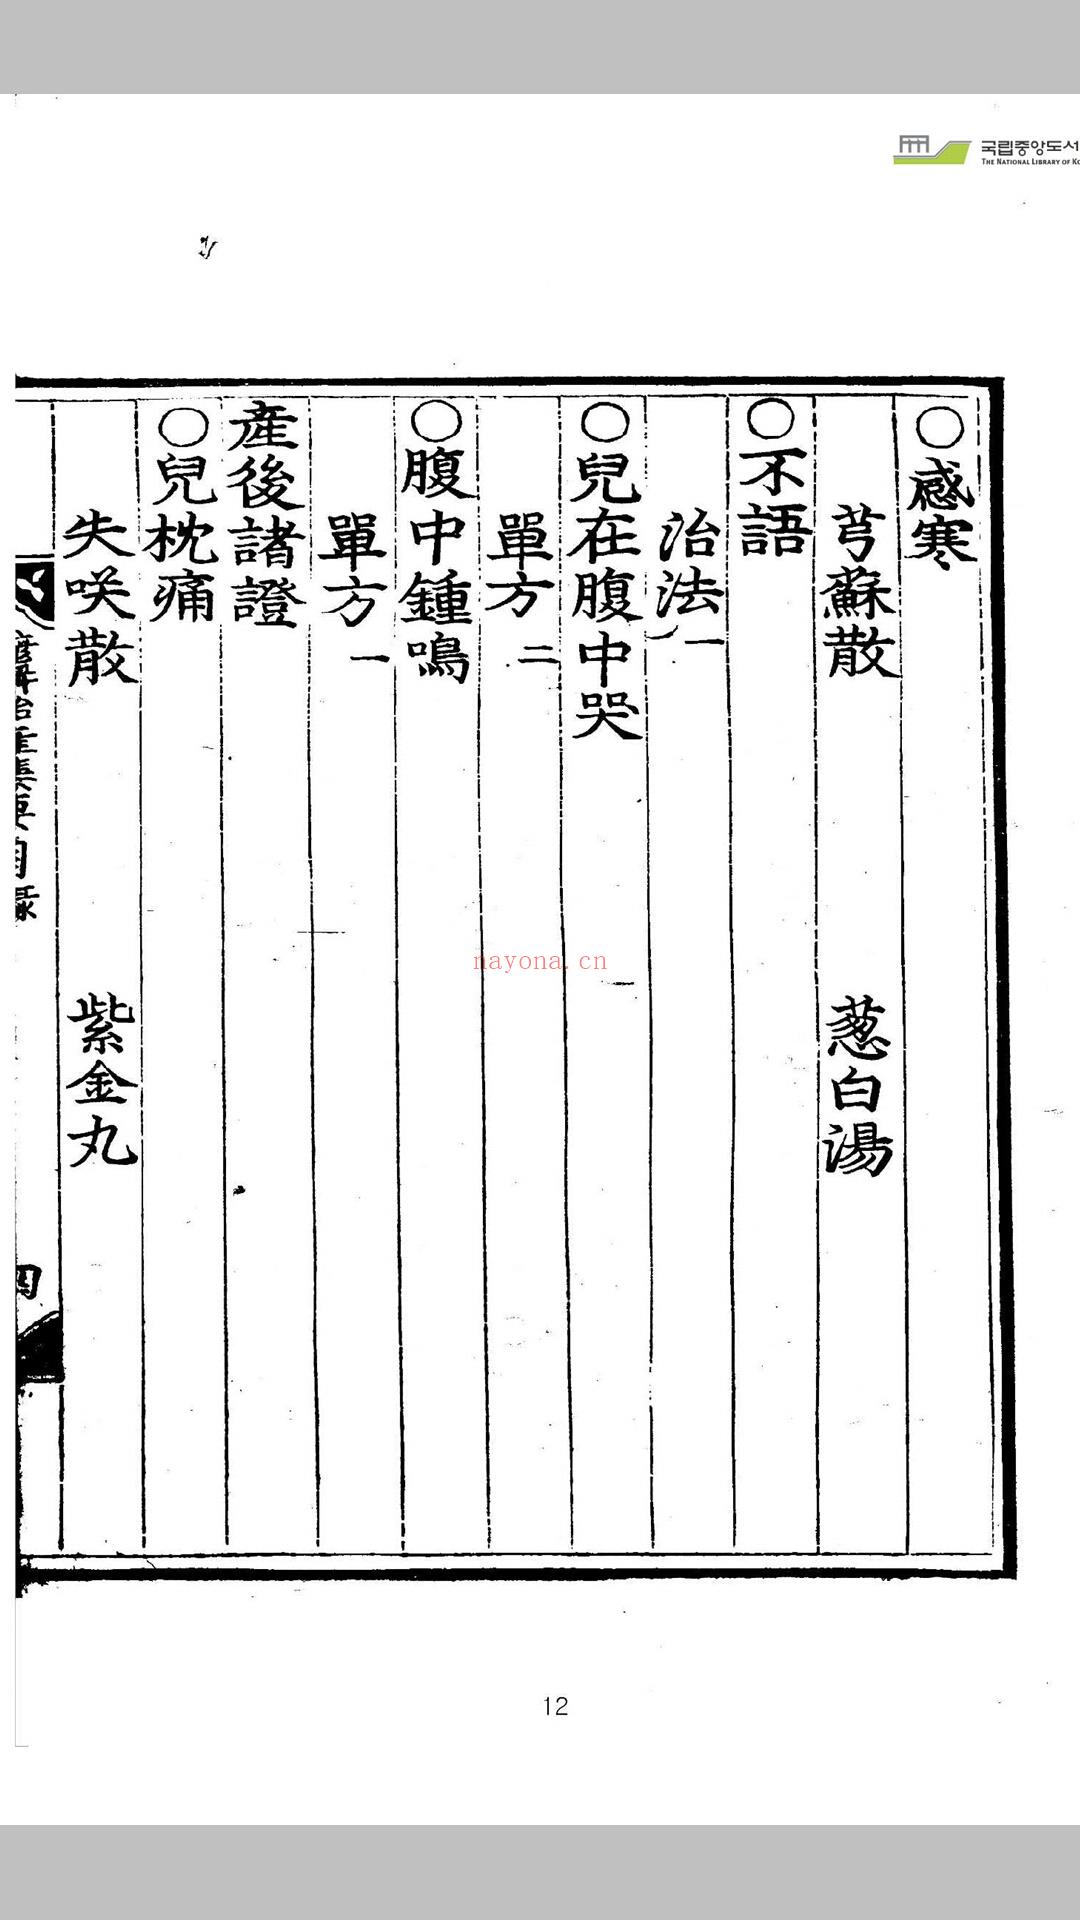 국립중앙도서
THE NATIONAL LIBRARY OF KO
○感寒
芎蘇散 葱白湯
○不語
治法一
○兒在腹中哭
單方二
○腹中鍾鳴
單方一
産後諸證
○兒枕痛
失咲散 紫金丸
集要目錄
四
nayona.cn
12